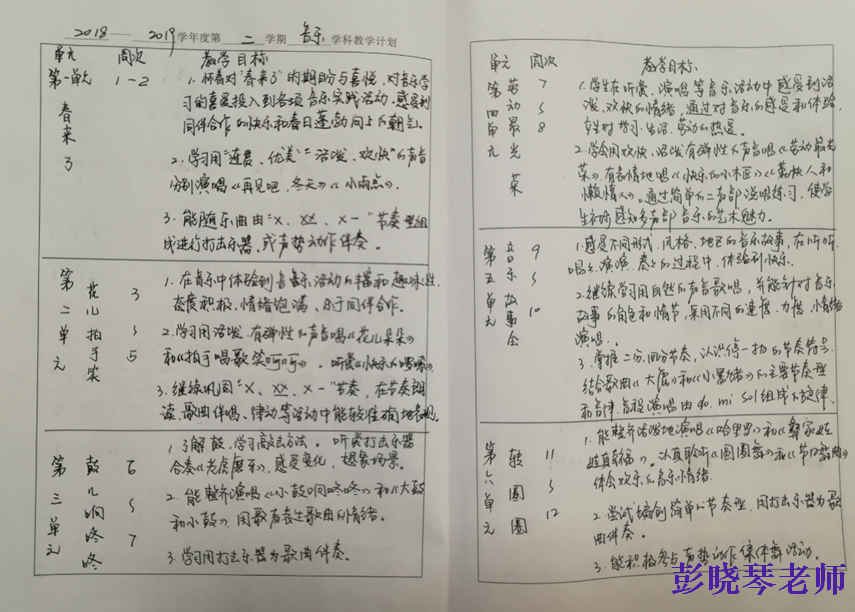 2018—2019学年度第二学期音乐学科教学计划
单元 周次 教学目标
第一单元 春来了 1-2
1.怀着对"春来了"的期盼与喜悦,对音乐学
习的喜爱投入到各项音乐实践活动,感受到
同伴合作的快乐和春日蓬勃向上的朝气。
2.学习用"连贯、优美""活泼、欢快"的声音
分别演唱《再见吧,冬天》《小雨点》.
3.能随乐曲由"X、XX、X-"节奏型组
成进行打击乐器,或声势动作伴奏。
第二单元 花儿拍手笑 3、5
1.在音乐中体验到音乐活动的丰富和趣味性,
态度积极,情绪饱满、乐于同伴合作。
2.学习用活泼、有弹性的声音唱《花儿朵朵》
和《拍手唱歌笑呵呵》.听赏《快乐的
3.继续巩固"X、XX、X-"节奏,在节奏朗
读、歌曲伴唱、律动等活动中能较准确地表现。
第三单元 鼓儿响咚咚 6、7
1.了解鼓,学习敲击方法。听赏打击乐器
合奏《老虎磨牙》,感受变化,想象场景。
2.能整齐演唱《小鼓响咚咚》和《大鼓
和小鼓》,用歌声表达歌曲的情绪。
3.学习用打击乐器为歌曲伴奏。
单元 周次 教学目标
第四单元 劳动最光荣 7、8
1.学生在听赏、演唱等音乐活动中感受到活
泼、欢快的情绪,通过对音乐的感受和体验,
对学习、生活、劳动的热爱。
2.学会用欢快、活泼有弹性的声音唱《劳动最光
荣》,有表情地唱《快乐的小木匠》《勤快人和
懒惰人》。通过简单的二声部演唱练习,使学
生初步感知多声部音乐的艺术魅力。
第五单元 音乐故事会 9、10
1.感受不同形式、风格、地区的音乐故事,在听听、
唱唱、演演、奏奏的过程中,体验到快乐。
2.继续学习用自然的声音歌唱,并能针对音乐
故事的角色和情节,采用不同的速度、力度、情绪
演唱.
3.掌握二分、四分节奏,认识停一拍的节奏符号.
结合歌曲《大鹿》和《小
的主要节奏型
和音律,音程演唱由do.mi sol组成的旋律.
第六单元 转圆圈 11、12
1.能整齐活泼地演唱《哈里罗》和《彝家娃
娃真幸福》。认真聆听《圆圈舞》和《节日舞曲》
体会欢乐的音乐情绪.
2.尝试编创简单的节奏型,用打击乐器为歌
曲伴奏。
3.能积极参与声势动作集体舞活动.
彭晓琴老师